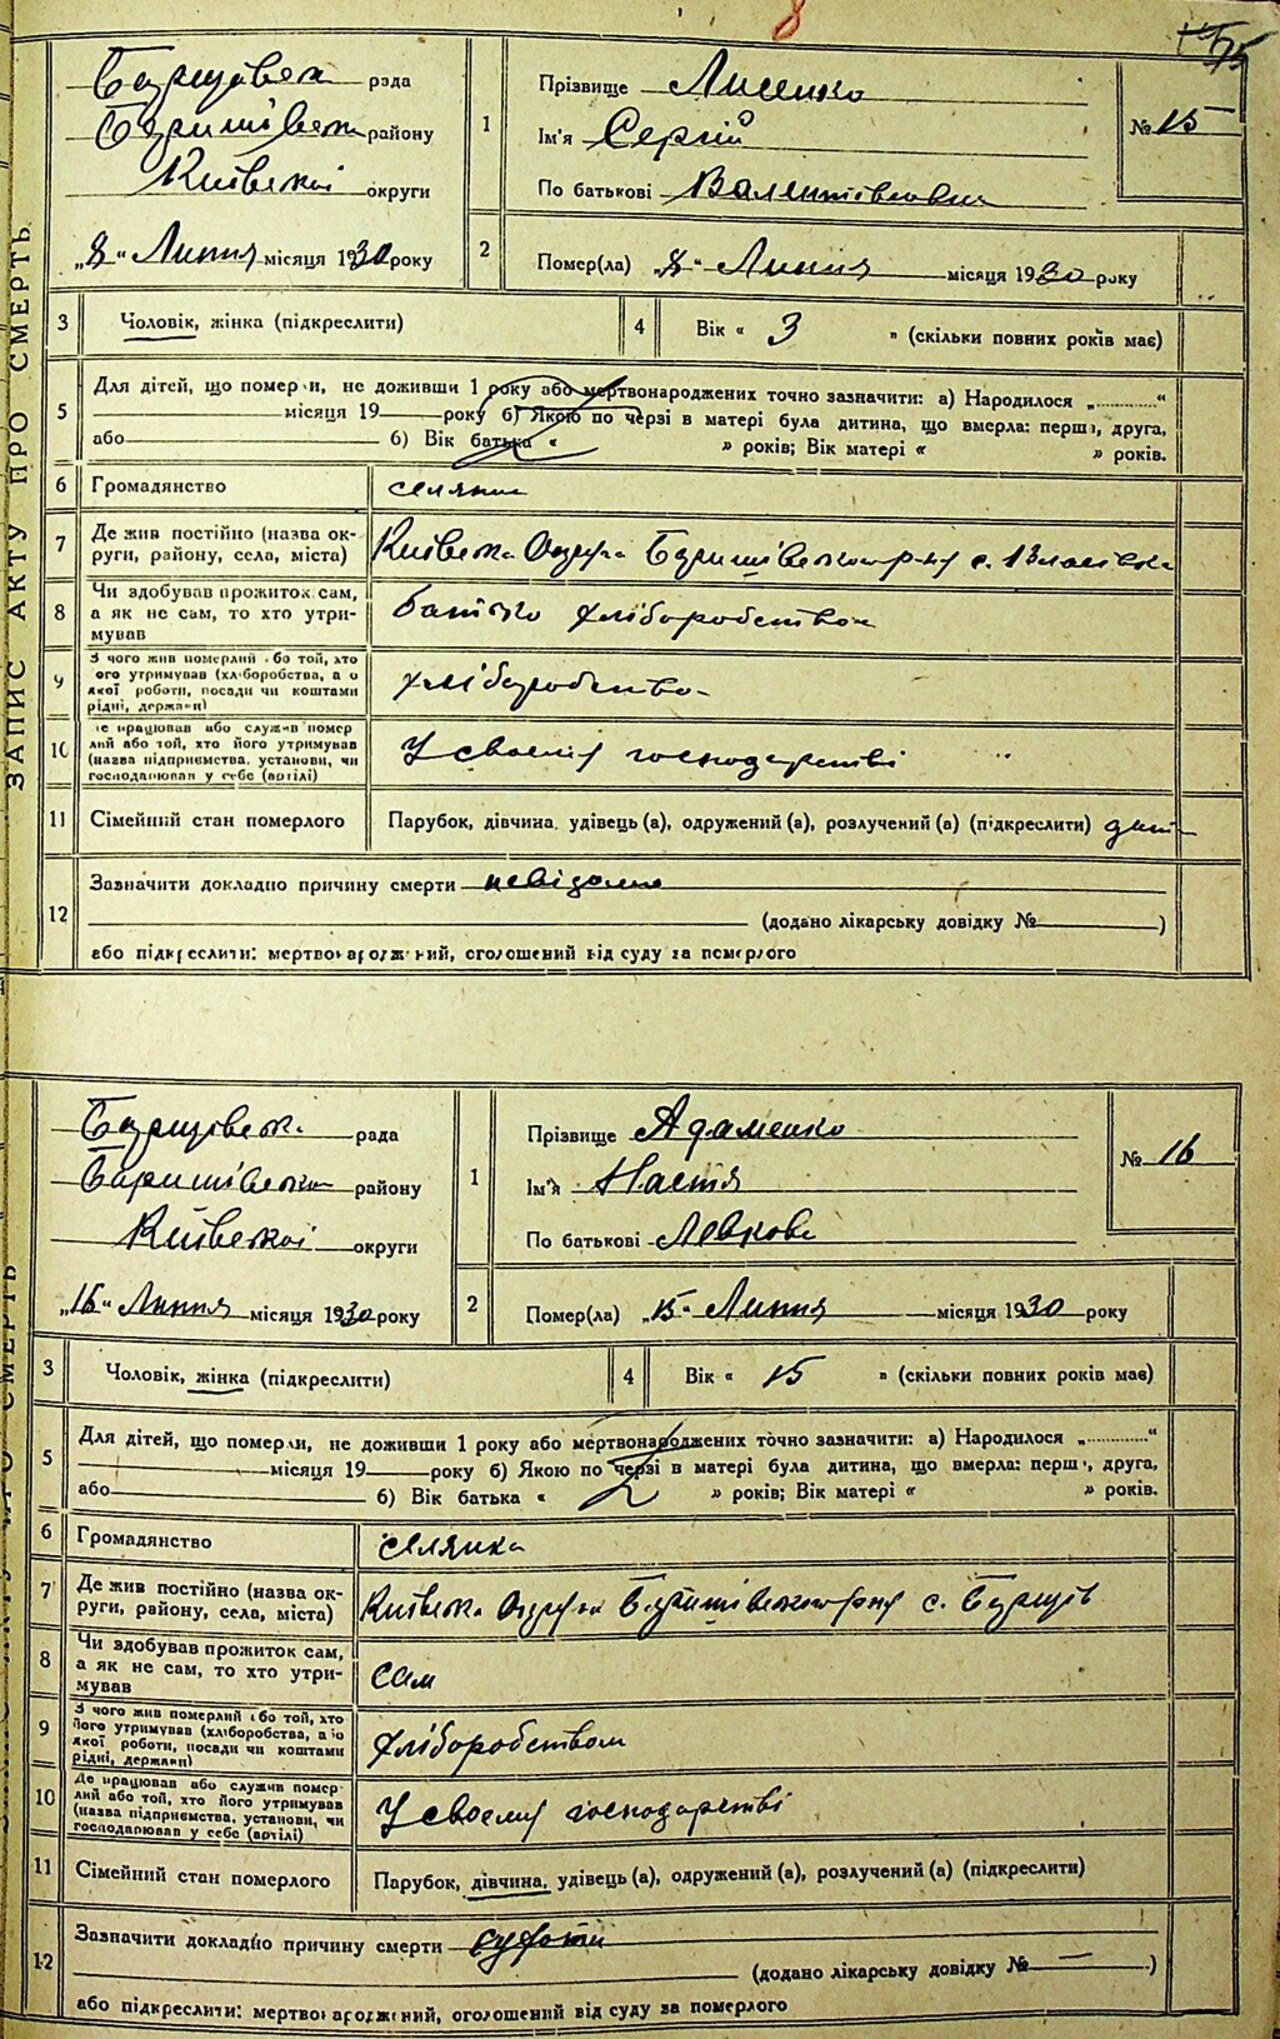 8
15
ЗАПИС АКТУ ПРО СМЕРТЬ
Борщівська рада
Баришівського району
Київської округи
„8“ Липня місяця 1930 року
1
Прізвище Лисенко
Ім'я Сергій
По батькові
№ 15
2
Помер(ла) „8“ Липня місяця 1930 року
3 Чоловік, жінка (підкреслити)
4 Вік « 3 » (скільки повних років має)
5
Для дітей, що померли, не доживши 1 року або мертвонароджених точно зазначити: а) Народилося „............“
місяця 19 року б) Якою по черзі в матері була дитина, що вмерла: перша, друга,
або б) Вік батька « » років; Вік матері « » років.
6 Громадянство селянин
7
Де жив постійно (назва ок-
руги, району, села, міста) Київська Округа Баришівського р-ну с. Власівка
8
Чи здобував прожиток сам,
а як не сам, то хто утри-
мував
батько хліборобством
9
З чого жив померлий або той, хто
його утримував (хліборобства, або
якої роботи, посади чи коштами
рідні, держави)
хліборобство
10
Де працював або служив помер
лий або той, хто його утримував
(назва підприємства, установи, чи
господарював у себе (артілі)
У своєму господарстві
11 Сімейний стан померлого Парубок, дівчина, удівець (а), одружений (а), розлучений (а) (підкреслити)
12
Зазначити докладно причину смерти невідомо
(додано лікарську довідку № )
або підкреслити: мертвонароджений, оголошений від суду за померлого
ЗАПИС АКТУ ПРО СМЕРТЬ
Борщівська рада
Баришівського району
Київської округи
„16“ Липня місяця 1930 року
1
Прізвище Адаменко
Ім'я Настя
По батькові Левкова
№ 16
2
Помер(ла) „15“ Липня місяця 1930 року
3 Чоловік, жінка (підкреслити)
4 Вік « 15 » (скільки повних років має)
5
Для дітей, що померли, не доживши 1 року або мертвонароджених точно зазначити: а) Народилося „............“
місяця 19 року б) Якою по черзі в матері була дитина, що вмерла: перша, друга,
або б) Вік батька « » років; Вік матері « » років.
6 Громадянство селянка
7
Де жив постійно (назва ок-
руги, району, села, міста) Київська Округа Баришівського р-ну с. Борщів
8
Чи здобував прожиток сам,
а як не сам, то хто утри-
мував
сам
9
З чого жив померлий або той, хто
його утримував (хліборобства, або
якої роботи, посади чи коштами
рідні, держави)
хліборобством
10
Де працював або служив помер
лий або той, хто його утримував
(назва підприємства, установи, чи
господарював у себе (артілі)
У своєму господарстві
11 Сімейний стан померлого Парубок, дівчина, удівець (а), одружений (а), розлучений (а) (підкреслити)
12
Зазначити докладно причину смерти сухоти
(додано лікарську довідку № — )
або підкреслити: мертвонароджений, оголошений від суду за померлого